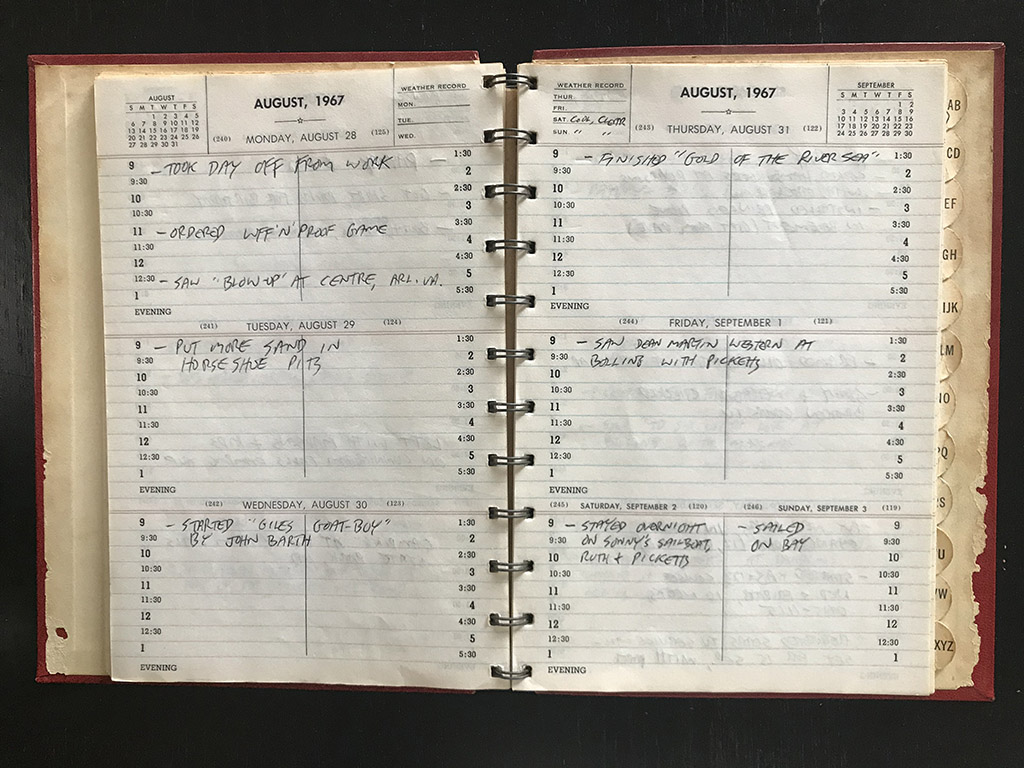 AUGUST
S M T W T F S
1 2 3 4 5
6 7 8 9 10 11 12
13 14 15 16 17 18 19
20 21 22 23 24 25 26
27 28 29 30 31
AUGUST, 1967
(240) MONDAY, AUGUST 28 (125)
WEATHER RECORD
MON.
TUE.
WED.
9 - TOOK DAY OFF FROM WORK 1:30
9:30 2
10 2:30
10:30 3
11 - ORDERED WFF'N'PROOF GAME 3:30
11:30 4
12 4:30
12:30 - SAW "BLOW-UP" AT CENTRE, ARL. VA. 5
1 5:30
EVENING
(241) TUESDAY, AUGUST 29 (124)
9 - PUT MORE SAND IN 1:30
9:30 HORSE SHOE PITS 2
10 2:30
10:30 3
11 3:30
11:30 4
12 4:30
12:30 5
1 5:30
EVENING
(242) WEDNESDAY, AUGUST 30 (123)
9 - STARTED "GILES GOAT-BOY" 1:30
9:30 BY JOHN BARTH 2
10 2:30
10:30 3
11 3:30
11:30 4
12 4:30
12:30 5
1 5:30
EVENING
WEATHER RECORD
THUR.
FRI.
SAT. COOL, CLEAR
SUN. " "
AUGUST, 1967
(243) THURSDAY, AUGUST 31 (122)
SEPTEMBER
S M T W T F S
1 2
3 4 5 6 7 8 9
10 11 12 13 14 15 16
17 18 19 20 21 22 23
24 25 26 27 28 29 30
9 - FINISHED "GOLD OF THE RIVER SEA" 1:30
9:30 2
10 2:30
10:30 3
11 3:30
11:30 4
12 4:30
12:30 5
1 5:30
EVENING
(244) FRIDAY, SEPTEMBER 1 (121)
9 - SAW DEAN MARTIN WESTERN AT 1:30
9:30 BOLLING WITH PICKETTS 2
10 2:30
10:30 3
11 3:30
11:30 4
12 4:30
12:30 5
1 5:30
EVENING
(245) SATURDAY, SEPTEMBER 2 (120) (246) SUNDAY, SEPTEMBER 3 (119)
9 - STAYED OVERNIGHT - SAILED 9
9:30 ON SONNY'S SAILBOAT, ON BAY 9:30
10 RUTH & PICKETTS 10
10:30 10:30
11 11
11:30 11:30
12 12
12:30 12:30
1 1
EVENING
AB
CD
EF
GH
IJK
LM
NO
PQ
RS
U
VW
XYZ